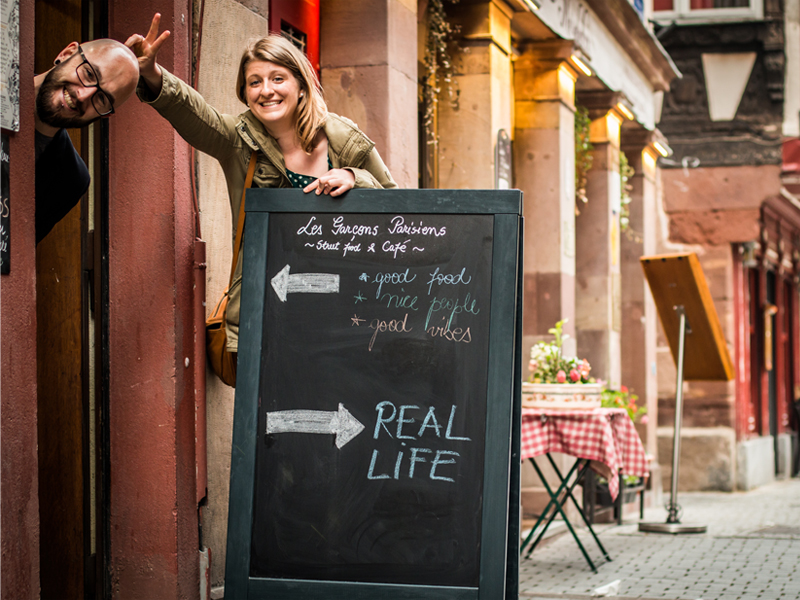 Les Garçons Parisiens
~ Street food & Café ~
* good food
* nice people
* good vibes
REAL
LIFE